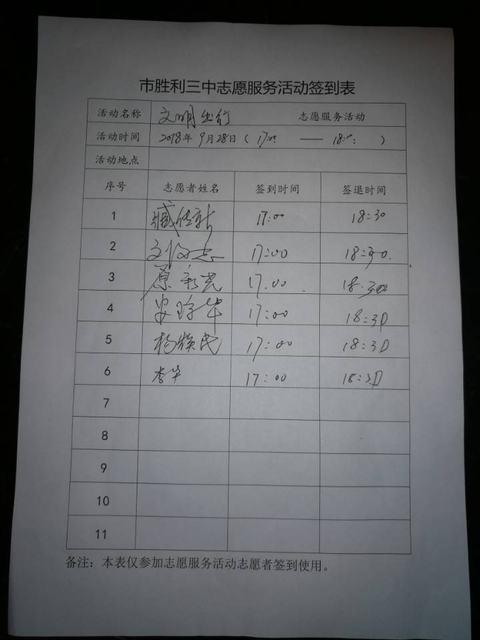 市胜利三中志愿服务活动签到表
活动名称 文明出行 志愿服务活动
活动时间 2018年9月28日（17:00 —— 18:00）
活动地点
序号 志愿者姓名 签到时间 签退时间
1 17:00 18:30
2 17:00 18:30
3 17:00 18:30
4 17:00 18:30
5 杨焕民 17:00 18:30
6 李华 17:00 18:30
7
8
9
10
11
备注：本表仅参加志愿服务活动志愿者签到使用。